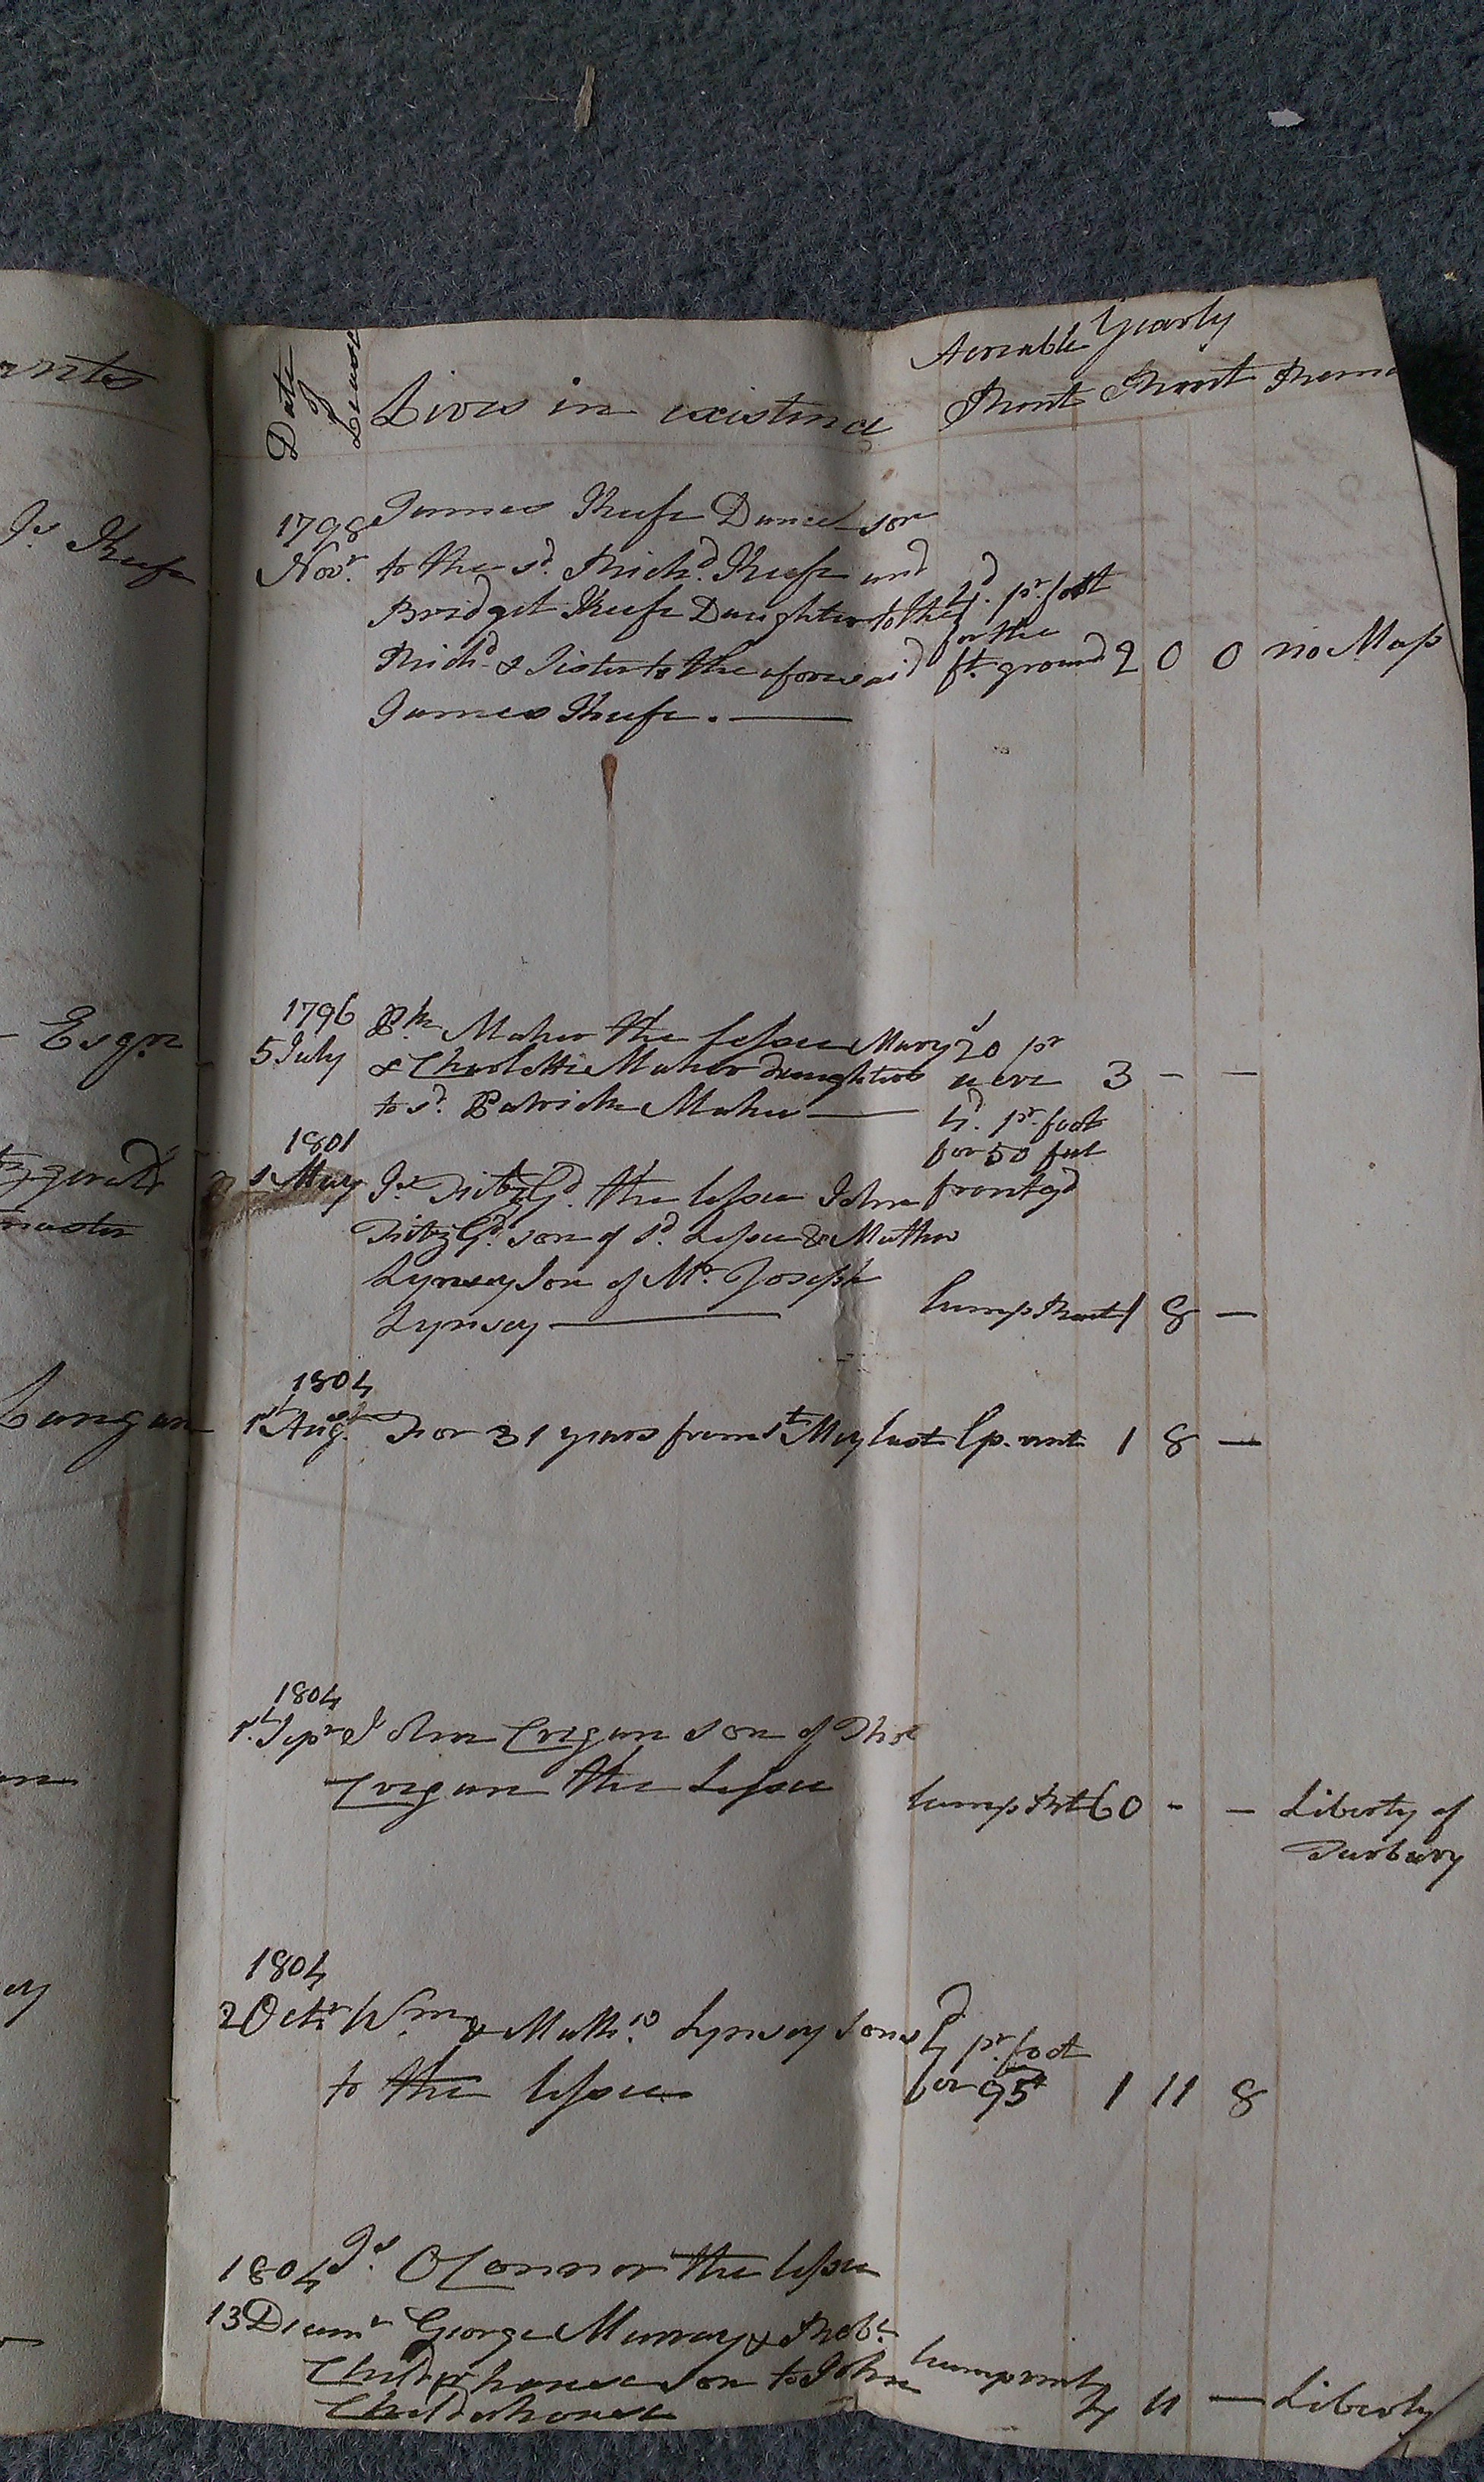 Date of Lease
Lives in existence
Acreable Yearly
Rent Rent
1798 James Keefe son
Novr. to the sd. Richd. Keefe and
Bridget Keefe Daughter to the 4d. pr. foot
for the
Richd. & Sister to the aforesaid ft. ground 2 0 0 no Map
James Keefe.
1796 Pk. Maher the Lessee Mary 20s pr
5 July & Charlotte Maher daughters acre 3 - -
to sd. Patrick Maher
4d. pr. foot
1801 for 50 feet
1 May Js. FitzGd. the lessee John frontgd
FitzGd. son of sd. Lessee & Mathew
Lynsey Son of Mr. Joseph
Lynsey lump Rent 1 8 -
1804
1st Augt. For 31 years from 1st May last lp. rent 1 8 -
1804
1st. Sepr John Cregan son of Thos
Cregan the Lessee
lump Rt 60 - - Liberty of
Turbary
1804
2 Octr. Wm. & Mathw. Lynsey sons 4d pr. foot
to the lessee for 95 ft 1 11 8
1804 Js. OConnor the lessee
13 Decemr George Murray & Robt.
Childerhouse son to John lump rent
Childerhouse 4 11 - Liberty
ants
Js. Keefe
Esqr
tzgerald
master
Langan